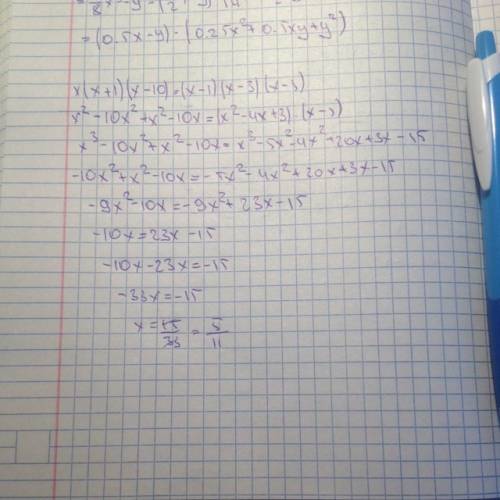 = (0.5x-y)-(0.25x²+0.5xy+y²)
x(x+1)(x-10)=(x-1)(x-3)(x-5)
x²-10x²+x²-10x=(x²-4x+3)·(x-5)
x³-10x²+x²-10x=x³-5x²-4x²+20x+3x-15
-10x²+x²-10x=-5x²-4x²+20x+3x-15
-9x²-10x=-9x²+23x-15
-10x=23x-15
-10x-23x=-15
-33x=-15
x=15/33=5/11